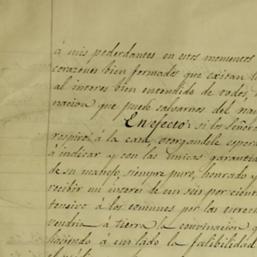 á mis poderdantes en estos momentos
corazones bien formados que exitan l
al interes bien entendido de todos,
nacion que puede salvarnos del nau
En efecto: si los Señore
respiro á la casa, otorgandole espera
á indicar y con las unicas garantia
de su manejo, siempre puro, honrado y
recibir un interes de un seis por ciento
tensivo á los comunes por las
vendria á tierra la convinacion q
haciendo á un lado la falibilidad